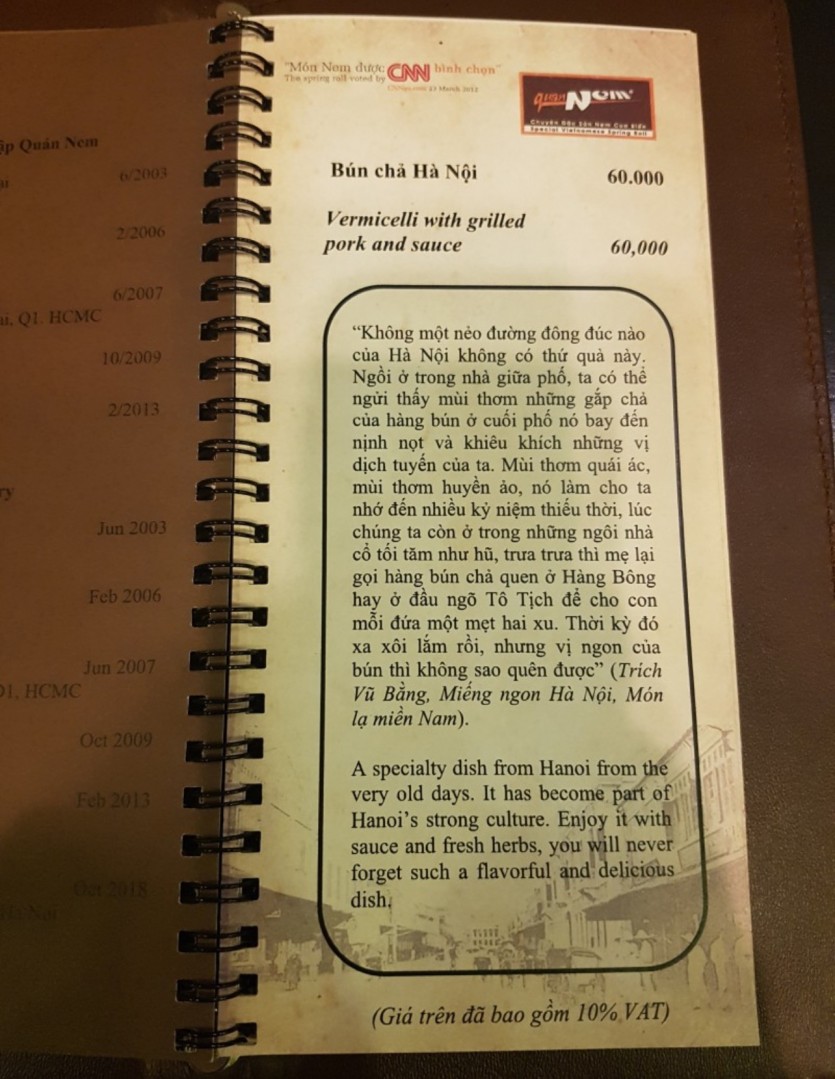 ập Quán Nem
6/2003
2/2006
6/2007
ai, Q1. HCMC
10/2009
2/2013
ry
Jun 2003
Feb 2006
Jun 2007
Q1, HCMC
Oct 2009
Feb 2013
Oct 2018
"Món Nem được CNN bình chọn"
The spring roll voted by
quán Nem
Chuyên Đặc Sản Nem Cua Biển
Special Vietnamese Spring Roll
Bún chả Hà Nội 60.000
Vermicelli with grilled
pork and sauce 60,000
“Không một nẻo đường đông đúc nào
của Hà Nội không có thứ quà này.
Ngồi ở trong nhà giữa phố, ta có thể
ngửi thấy mùi thơm những gắp chả
của hàng bún ở cuối phố nó bay đến
nịnh nọt và khiêu khích những vị
dịch tuyến của ta. Mùi thơm quái ác,
mùi thơm huyền ảo, nó làm cho ta
nhớ đến nhiều kỷ niệm thiếu thời, lúc
chúng ta còn ở trong những ngôi nhà
cổ tối tăm như hũ, trưa trưa thì mẹ lại
gọi hàng bún chả quen ở Hàng Bông
hay ở đầu ngõ Tô Tịch để cho con
mỗi đứa một mẹt hai xu. Thời kỳ đó
xa xôi lắm rồi, nhưng vị ngon của
bún thì không sao quên được” (Trích
Vũ Bằng, Miếng ngon Hà Nội, Món
lạ miền Nam).
A specialty dish from Hanoi from the
very old days. It has become part of
Hanoi’s strong culture. Enjoy it with
sauce and fresh herbs, you will never
forget such a flavorful and delicious
dish.
(Giá trên đã bao gồm 10% VAT)